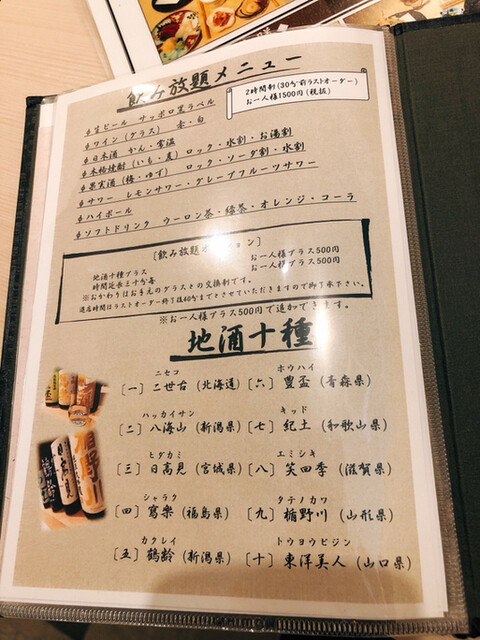 飲み放題メニュー
2時間制(30分前ラストオーダー)
お一人様1500円(税抜)
生ビール サッポロ黒ラベル
ワイン(グラス) 赤・白
日本酒 かん・常温
本格焼酎(いも・麦)ロック・水割・お湯割
果実酒(梅・ゆず) ロック・ソーダ割・水割
サワー レモンサワー・グレープフルーツサワー
ハイボール
ソフトドリンク ウーロン茶・緑茶・オレンジ・コーラ
[飲み放題
ション]
地酒十種プラス お一人様プラス500円
時間延長三十分毎 お一人様プラス500円
※おかわりはお手元のグラスとの交換制です。
退店時間はラストオーダー終了後40分までとさせていただきますので御了承下さい。
※お一人様プラス500円で追加できます。
地酒十種
ニセコ
[一]二世古(北海道)
ハッカイサン
[二]八海山(新潟県)
ヒダカミ
[三]日高見(宮城県)
シャラク
[四]寫樂(福島県)
カクレイ
[五]鶴齢(新潟県)
ホウハイ
[六]豊盃(青森県)
キッド
[七]紀土(和歌山県)
エミシキ
[八]笑四季(滋賀県)
タテノカワ
[九]楯野川(山形県)
トウヨウビジン
[十]東洋美人(山口県)